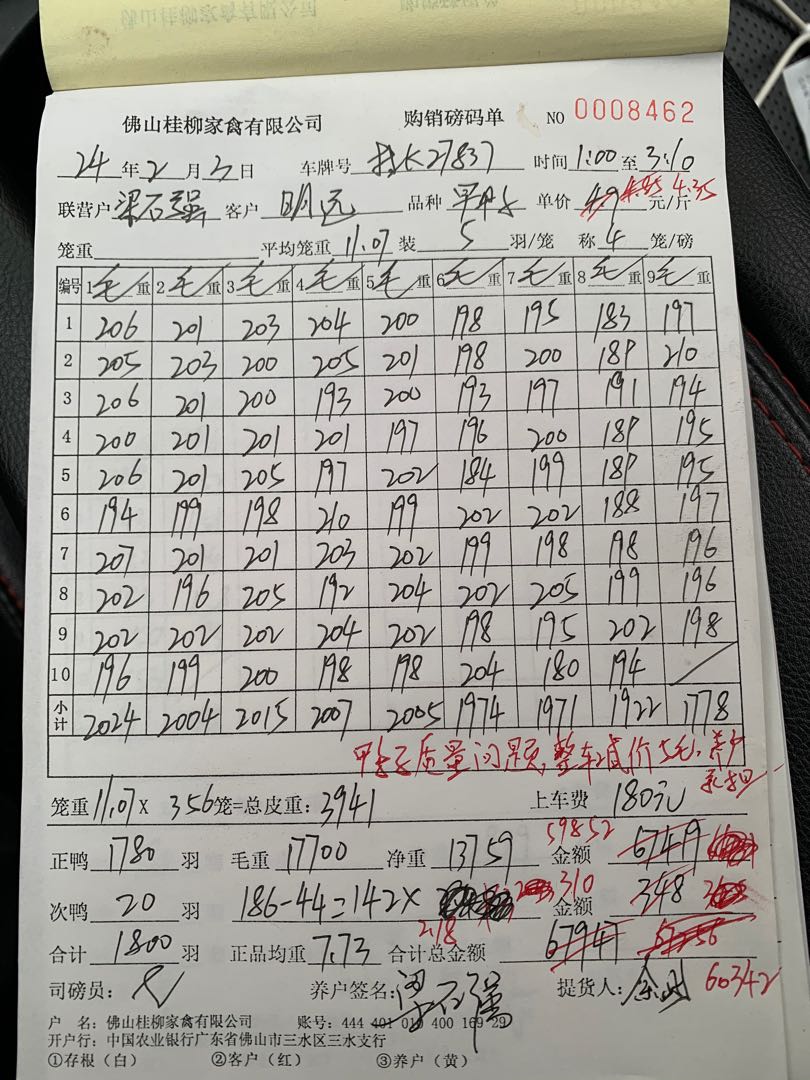 佛山桂柳家禽有限公司 购销磅码单 NO 0008462
24 年 2 月 3 日 车牌号 27837 时间 1:00 至 3:10
联营户 梁石强 客户 明远 品种 单价 4.9 4.85 4.35 元/斤
笼重 平均笼重 11.07 装 5 羽/笼 称 4 笼/磅
编号 1 毛 重 2 毛 重 3 毛 重 4 毛 重 5 毛 重 6 毛 重 7 毛 重 8 毛 重 9 毛 重
1 206 201 203 204 200 198 195 183 197
2 205 203 200 205 201 198 200 189 210
3 206 201 200 193 200 193 197 191 194
4 200 201 201 201 197 196 200 189 195
5 206 201 205 197 202 184 199 189 195
6 194 199 198 210 199 202 202 188 197
7 207 201 201 203 202 199 198 198 196
8 202 196 205 192 204 202 205 199 196
9 202 202 202 204 202 198 195 202 198
10 196 199 200 198 198 204 180 194
小计 2024 2004 2015 2007 2005 1974 1971 1922 1778
质量问题,整车减价5毛,养户
承担
笼重 11.07 X 356 笼=总皮重: 3941 上车费 180元
正鸭 1780 羽 毛重 17700 净重 13759 金额 59852 67419
次鸭 20 羽 186-44=142X 2.18 金额 310 348
合计 1800 羽 正品均重 7.73 合计总金额 67947
司磅员: 养户签名: 梁石强 提货人: 60342
户 名: 佛山桂柳家禽有限公司 账号: 444 401 010 400 169 29
开户行: 中国农业银行广东省佛山市三水区三水支行
①存根(白) ②客户(红) ③养户(黄)